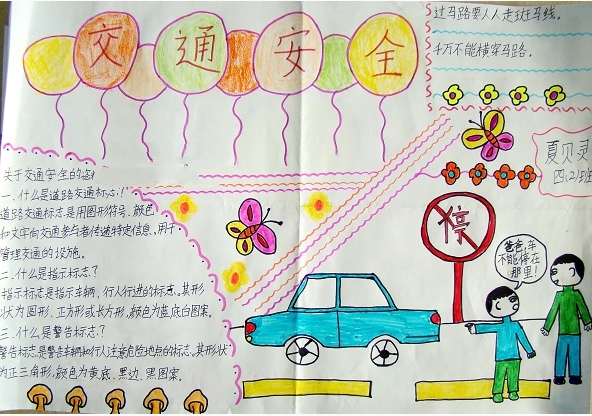 交通安全
过马路要人人走斑马线。
千万不能横穿马路。
夏贝灵
四.(2)班
关于交通安全的
一.什么是道路交通标志!
道路交通标志是用图形符号、颜色
和文字向交通参与者传递特定信息,用于
管理交通的设施。
二.什么是指示标志?
指示标志是指示车辆,行人行进的标志。其形
状为圆形、正方形或长方形,颜色为蓝底白图案。
三.什么是警告标志?
警告标志是警告车辆和行人注意危险地点的标志。其形状
为正三角形,颜色为黄底、黑边、黑图案。
停
爸爸,车
不能停在
那里!